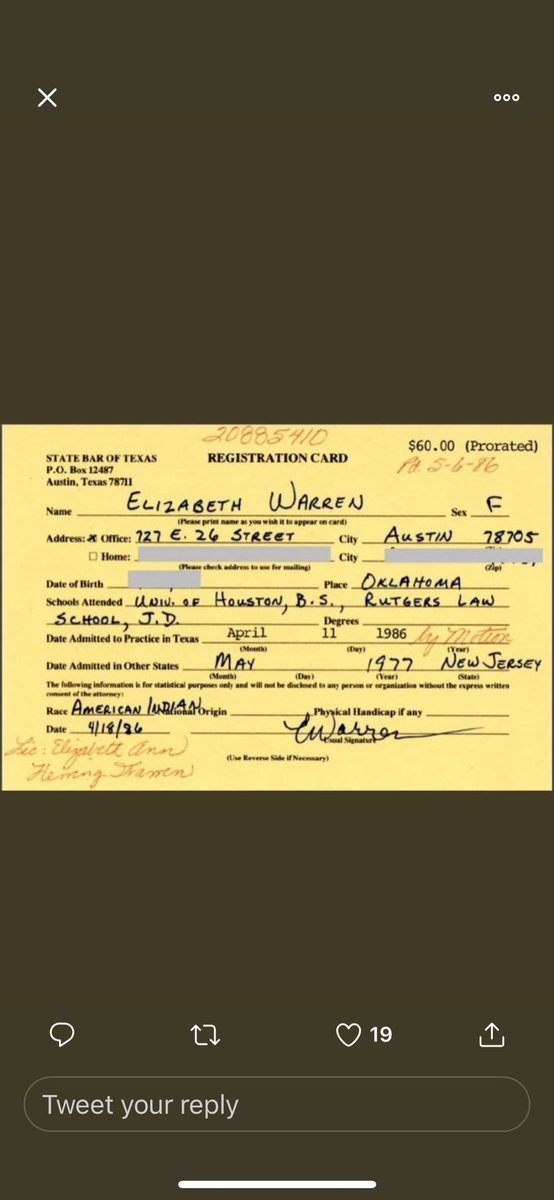 20885410
$60.00 (Prorated)
STATE BAR OF TEXAS
REGISTRATION CARD
Pd. 5-6-86
P.O. Box 12487
Austin, Texas 78711
Name ELIZABETH WARREN Sex F
(Please print name as you wish it to appear on card)
Address: x Office: 727 E. 26 STREET City AUSTIN 78705
Home: City
(Please check address to use for mailing) (Zip)
Date of Birth Place OKLAHOMA
Schools Attended UNIV. OF HOUSTON, B.S., RUTGERS LAW
SCHOOL, J.D. Degrees
Date Admitted to Practice in Texas April 11 1986 by Motion
(Month) (Day) (Year)
Date Admitted in Other States MAY 1977 NEW JERSEY
(Month) (Day) (Year) (State)
The following information is for statistical purposes only and will not be disclosed to any person or organization without the express written
consent of the attorney:
Race AMERICAN INDIAN National Origin Physical Handicap if any
Date 4/18/86 EWarren
Usual Signature
Lic: Elizabeth Ann
Herring Warren
(Use Reverse Side if Necessary)
19
Tweet your reply